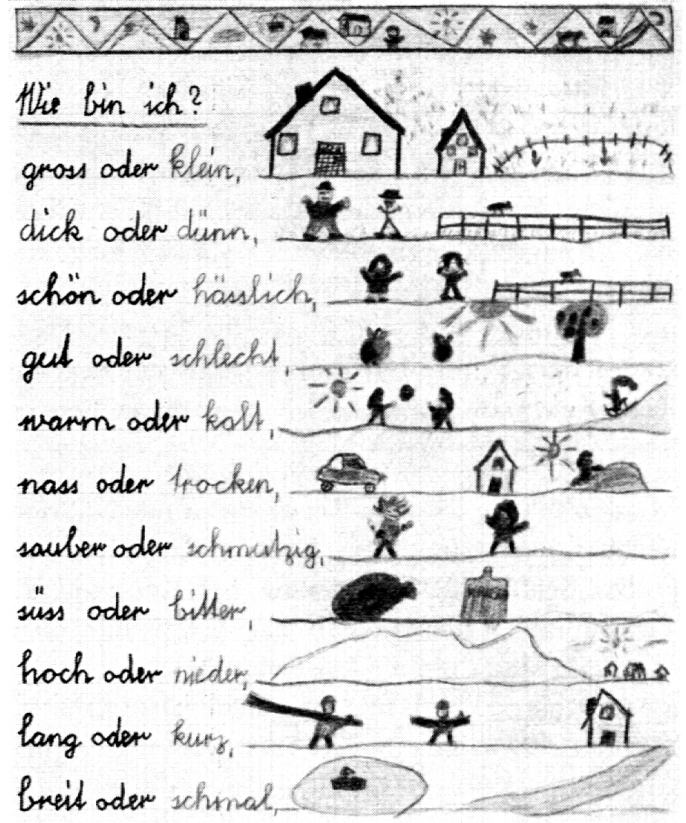 Wie bin ich?
gross oder klein,
dick oder dünn,
schön oder hässlich,
gut oder schlecht,
warm oder kalt,
nass oder trocken,
sauber oder schmutzig,
süss oder bitter,
hoch oder nieder,
lang oder kurz,
breit oder schmal,